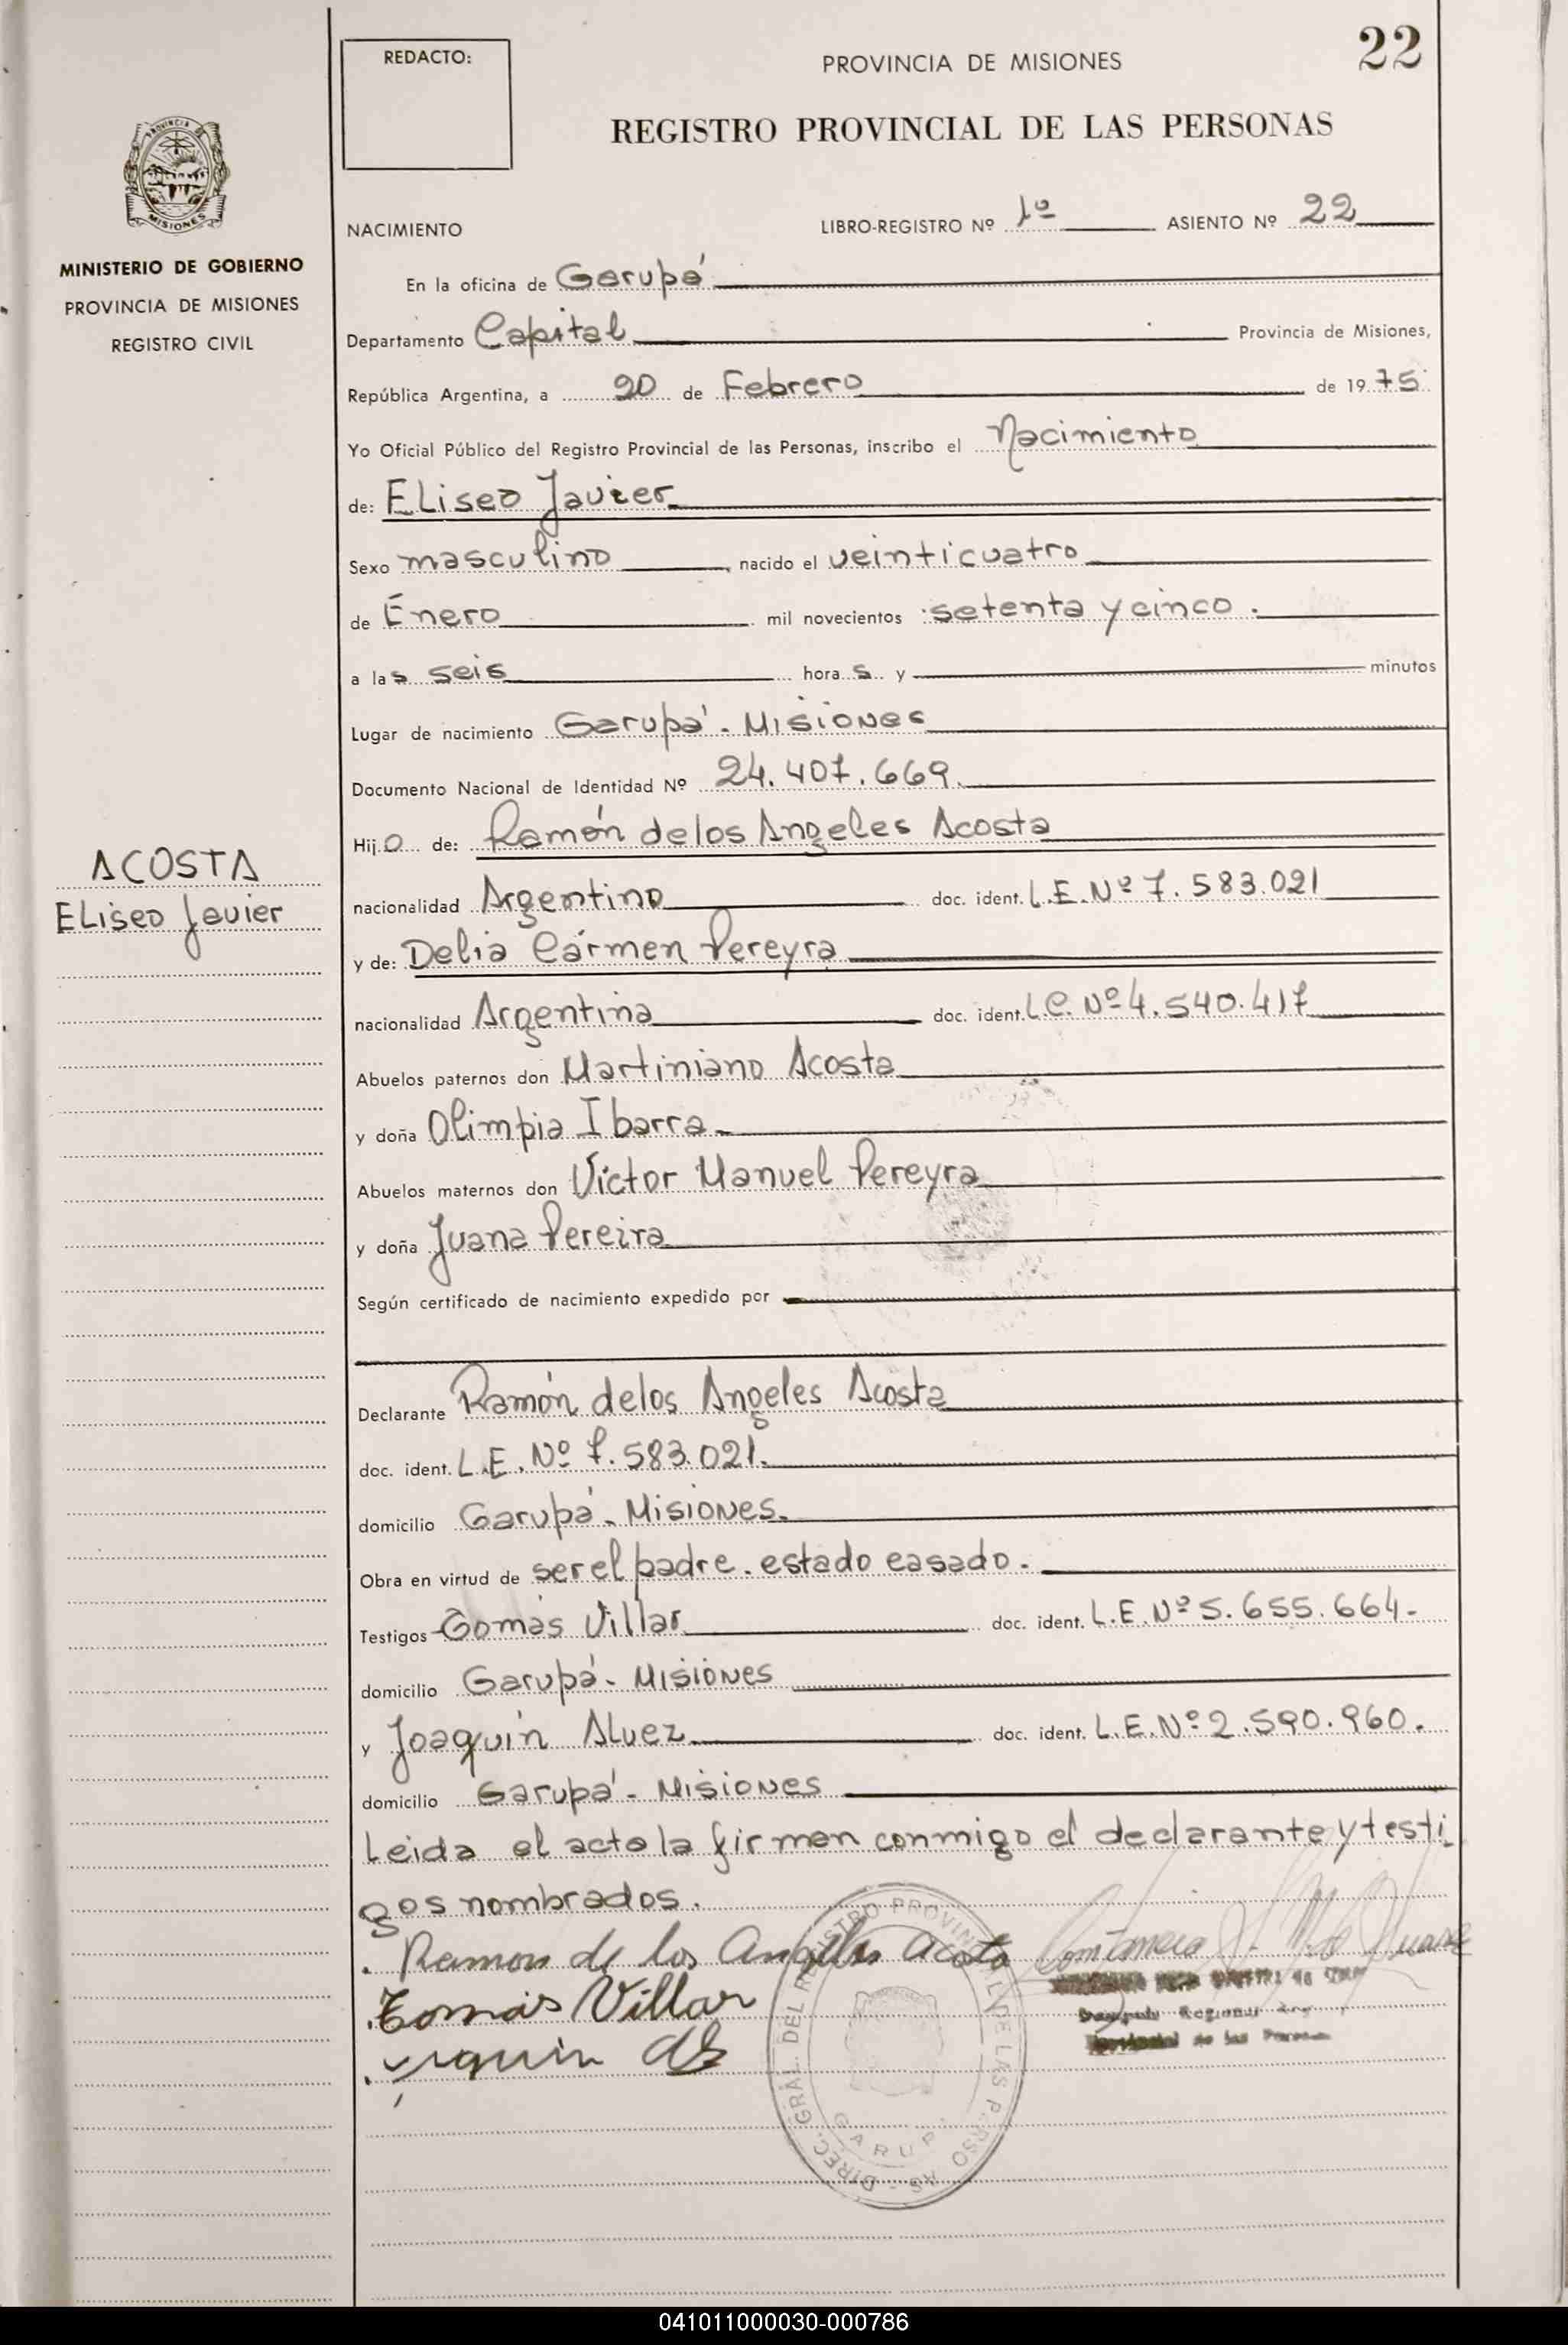 REDACTO:
PROVINCIA DE MISIONES
22
REGISTRO PROVINCIAL DE LAS PERSONAS
PROVINCIA DE
MISIONES
MINISTERIO DE GOBIERNO
PROVINCIA DE MISIONES
REGISTRO CIVIL
NACIMIENTO LIBRO-REGISTRO Nº 1º ASIENTO Nº 22
En la oficina de Garupá
Departamento Capital Provincia de Misiones,
República Argentina, a 20 de Febrero de 1975
Yo Oficial Público del Registro Provincial de las Personas, inscribo el Nacimiento
de: Eliseo Javier
Sexo masculino, nacido el veinticuatro
de Enero mil novecientos setenta y cinco.
a las seis horas y minutos
Lugar de nacimiento Garupá - Misiones
Documento Nacional de Identidad Nº 24.407.669.
Hijo de: Ramón de los Angeles Acosta
ACOSTA
Eliseo Javier
nacionalidad Argentino doc. ident. L.E. Nº 7.583.021
y de: Delia Cármen Pereyra
nacionalidad Argentina doc. ident. L.C. Nº 4.540.417
Abuelos paternos don Martiniano Acosta
y doña Olimpia Ibarra
Abuelos maternos don Víctor Manuel Pereyra
y doña Juana Pereira
Según certificado de nacimiento expedido por
Declarante Ramón de los Angeles Acosta
doc. ident. L.E. Nº 7.583.021.
domicilio Garupá - Misiones.
Obra en virtud de ser el padre. estado casado.
Testigos Tomás Villar doc. ident. L.E. Nº 5.655.664.
domicilio Garupá - Misiones
y Joaquín Alvez doc. ident. L.E. Nº 2.590.960.
domicilio Garupá - Misiones
Leida el acto la firman conmigo el declarante y testi
gos nombrados.
Ramon de los Angeles Acosta
Tomás Villar
DIREC. GRAL. DEL REGISTRO PROVINCIAL DE LAS PERSONAS
GARUP
041011000030-000786